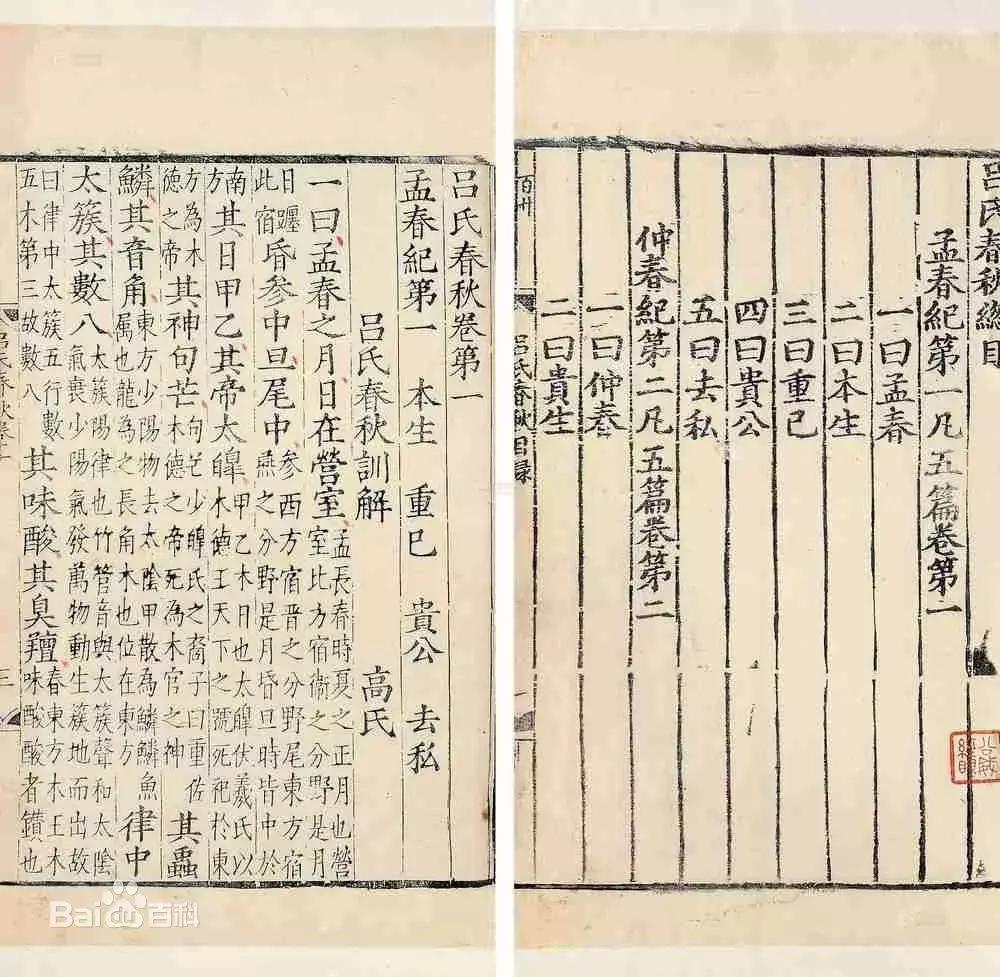 呂氏春秋總目
孟春紀第一凡五篇卷第一
一曰孟春
二曰本生
三曰重己
四曰貴公
五曰去私
仲春紀第二凡五篇卷第二
一曰仲春
二曰貴生
呂氏春秋目録
呂氏春秋卷第一
孟春紀第一 本生 重巳 貴公 去私
呂氏春秋訓解 高氏
一曰孟春之月日在營室孟長春時夏之正月也營室北方宿衞之分野是月
日躔此宿昏參中旦尾中參西方宿晋之分野尾東方宿燕之分野是月昏旦時皆中於
南方其日甲乙其帝太皥甲乙木日也太皥伏羲氏以木德王天下之號死祀於東
方為木德之帝其神句芒句芒少皥氏之裔子曰重佐木德之帝死為木官之神其蟲
鱗其音角東方少陽物去太陰甲散為鱗鱗魚屬也龍為之長角木也位在東方律中
太簇其數八太簇陽律也竹管音與太簇聲和太陰氣衰少陽氣發萬物動生簇地而出故
曰律中太簇五行數五木第三故數八其味酸其臭羶春東方木王木味酸酸者鑽也
Bai百科